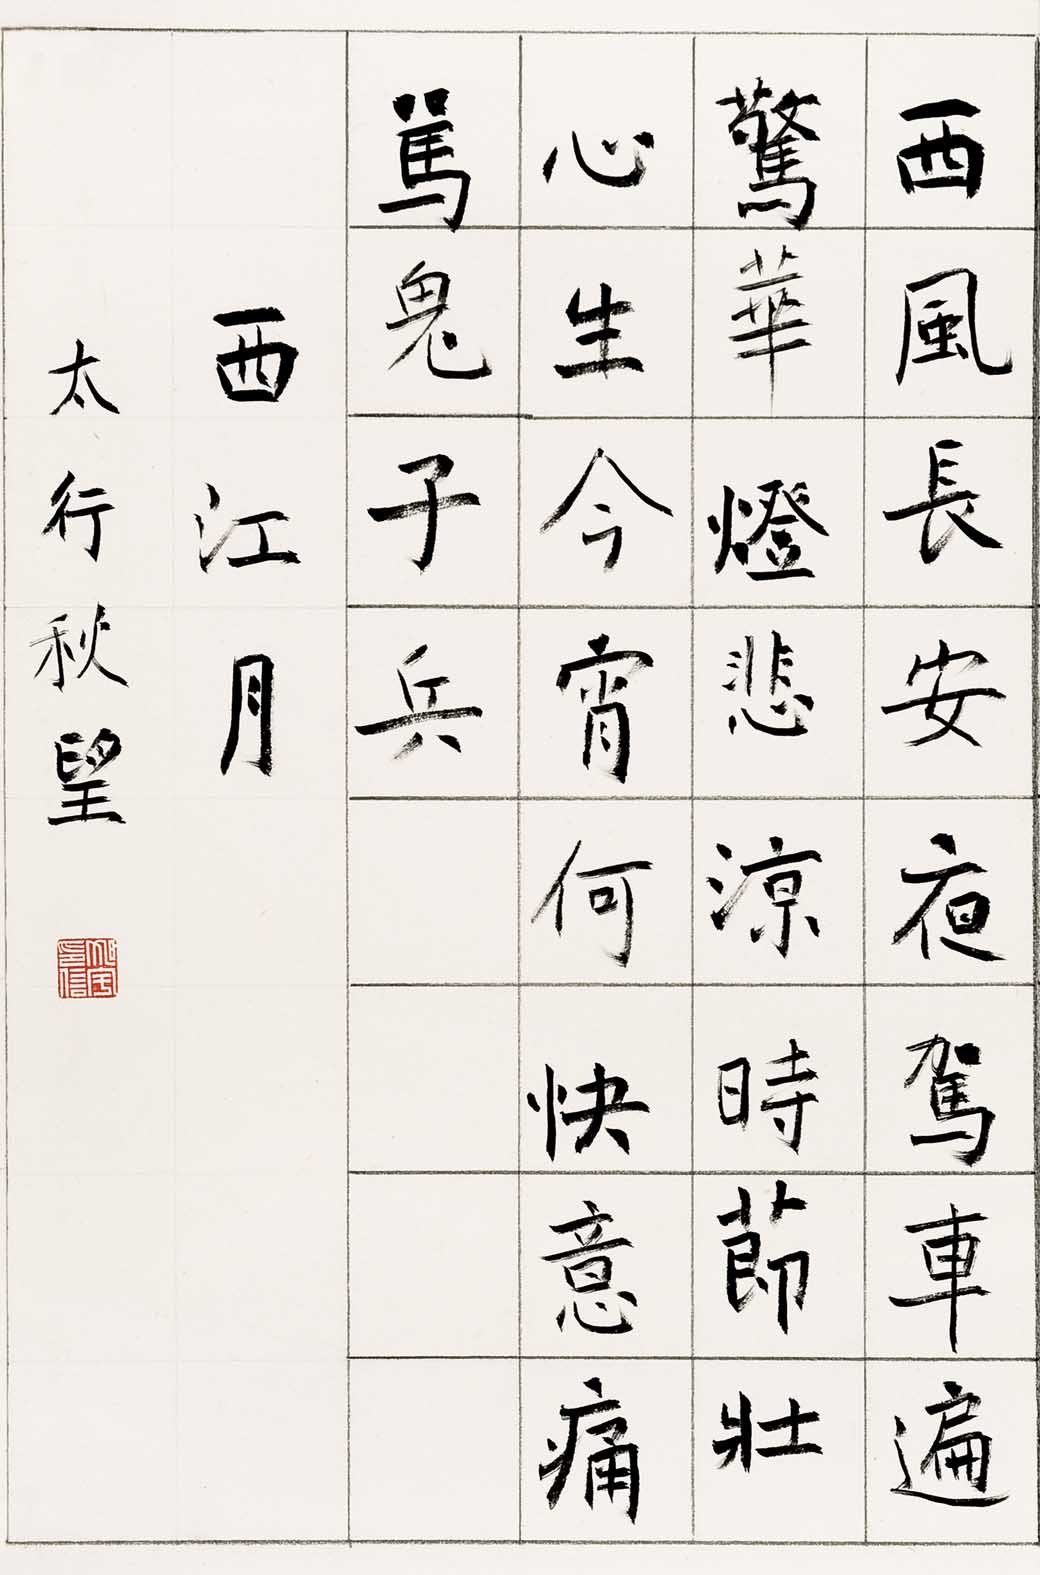 西風長安夜駕車遍
驚華燈悲涼時節壯
心生今宵何快意痛
罵鬼子兵
西江月
太行秋望